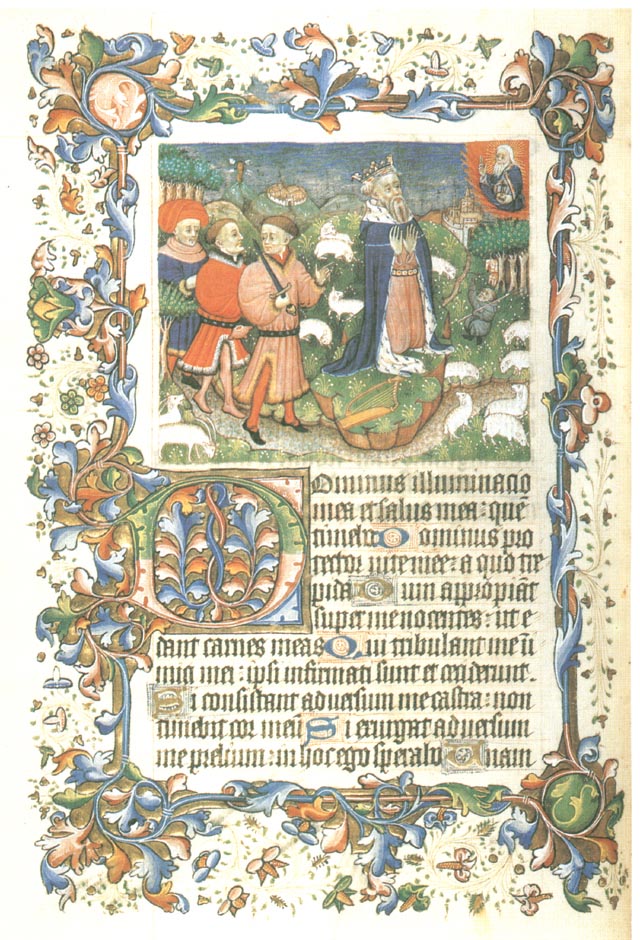 Dominus illuminacio
mea et salus mea: quē
timebo Dominus pro
tector vite mee: a quo tre
pida Dum appropiāt
super me nocentes: ut e
dant carnes meas Qui tribulant me ini
mici mei: ipsi infirmati sunt et ceciderunt.
Si consistant adversum me castra: non
timebit cor meū Si exurgat adversum
me prelium: in hoc ego sperabo Unam